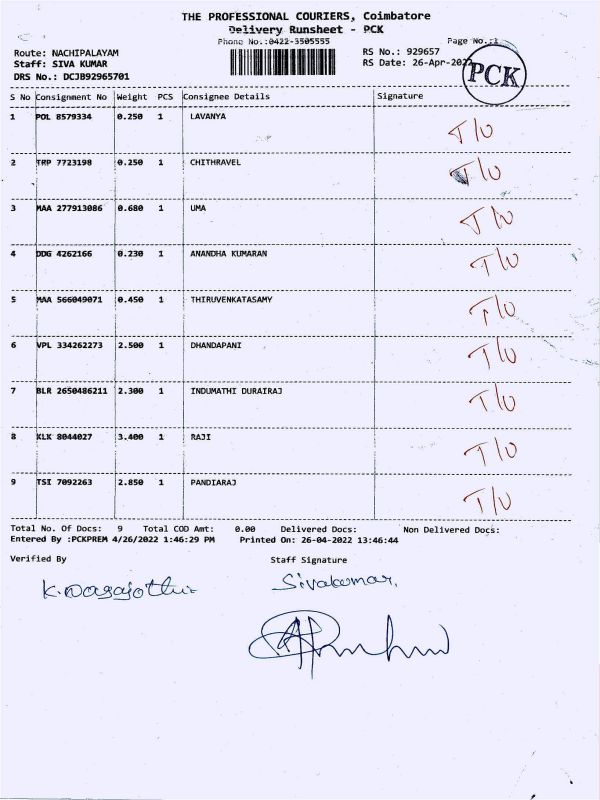 THE PROFESSIONAL COURIERS, Coimbatore
Delivery Runsheet - PCK
Phone No.:0422-3505555 Page No.:1
Route: NACHIPALAYAM RS No.: 929657
Staff: SIVA KUMAR RS Date: 26-Apr-2022
DRS No.: DCJB92965701 PCK
S No Consignment No Weight PCS Consignee Details Signature
1 POL 8579334 0.250 1 LAVANYA T/U
2 TRP 7723198 0.250 1 CHITHRAVEL T/U
3 MAA 277913086 0.680 1 UMA T/U
4 DDG 4262166 0.230 1 ANANDHA KUMARAN T/U
5 MAA 566049071 0.450 1 THIRUVENKATASAMY T/U
6 VPL 334262273 2.500 1 DHANDAPANI T/U
7 BLR 2650486211 2.300 1 INDUMATHI DURAIRAJ T/U
8 KLK 8044027 3.400 1 RAJI T/U
9 TSI 7092263 2.850 1 PANDIARAJ T/U
Total No. Of Docs: 9 Total COD Amt: 0.00 Delivered Docs: Non Delivered Docs:
Entered By :PCKPREM 4/26/2022 1:46:29 PM Printed On: 26-04-2022 13:46:44
Verified By Staff Signature
Sivakumar.